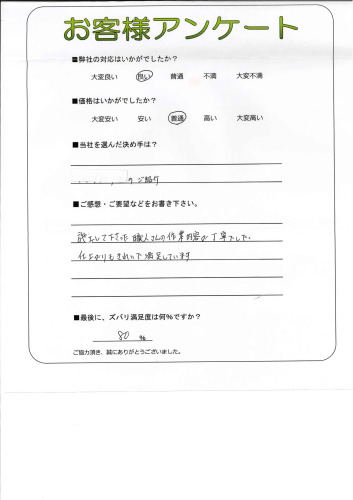 お客様アンケート
■弊社の対応はいかがでしたか?
大変良い 良い 普通 不満 大変不満
■価格はいかがでしたか?
大変安い 安い 普通 高い 大変高い
■当社を選んだ決め手は?
のご紹介
■ご感想・ご要望などをお書き下さい。
施工して下さった職人さんの作業内容が丁寧でした。
仕上がりもきれいで満足しています
■最後に、ズバリ満足度は何%ですか?
80 %
ご協力頂き、誠にありがとうございました。